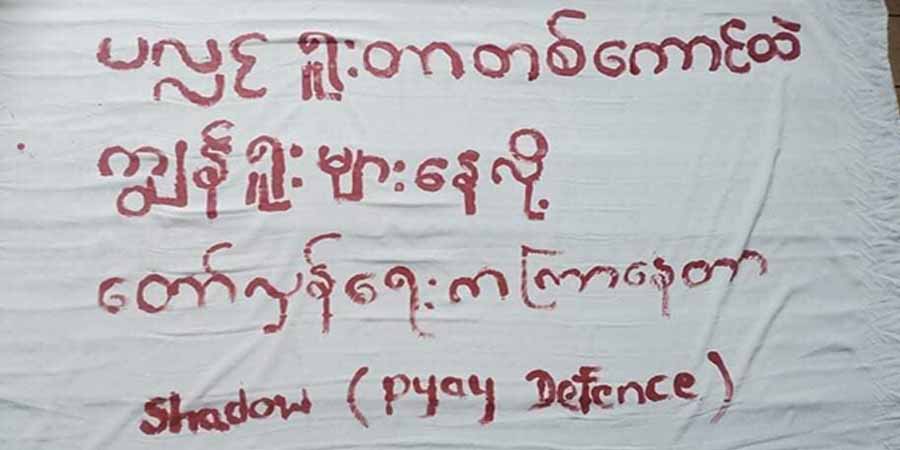 ပလ္လင် ရှူးတာတစ်ကောင်ထဲ
ကျွန်ရှူးများနေလို့
တော်လှန်ရေးကကြာနေတာ
Shadow (pyay Defence)